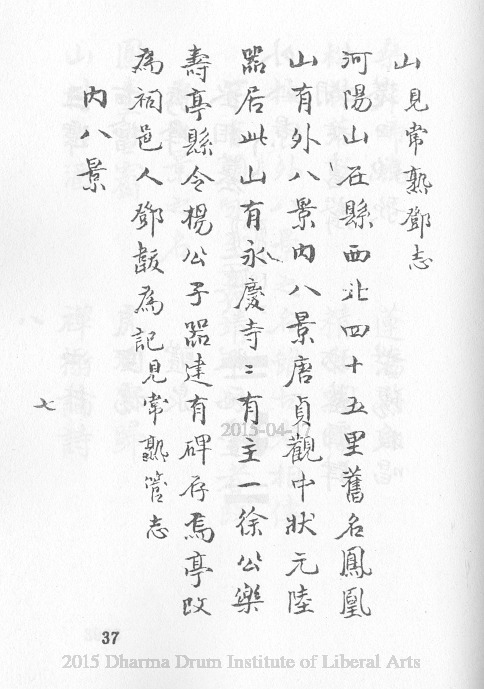 山見常熟鄧志
河陽山在縣西北四十五里舊名鳳凰
山有外八景內八景唐貞觀中狀元陸
器居此山有永慶寺〻有主一徐公樂
壽亭縣令楊公子器建有碑存焉亭改
為祠邑人鄧韍為記見常熟管志
內八景
七
37
2015-04-17
2015 Dharma Drum Institute of Liberal Arts